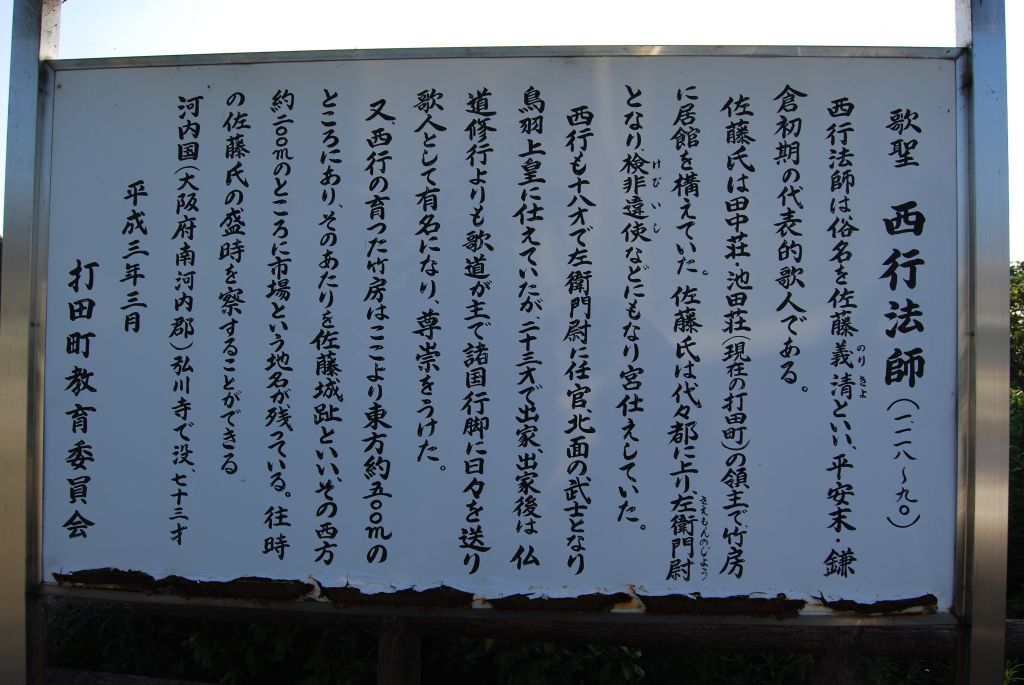 歌聖 西行法師(一一一八〜九〇)
西行法師は俗名を佐藤義清といい、平安末・鎌
のりきよ
倉初期の代表的歌人である。
佐藤氏は田中荘・池田荘(現在の打田町)の領主で竹房
に居館を構えていた。佐藤氏は代々都に上り、左衛門尉
さえもんのじょう
となり検非違使などにもなり宮仕えしていた。
けびいし
西行も十八才で左衛門尉に任官、北面の武士となり
鳥羽上皇に仕えていたが、二十三才で出家、出家後は仏
道修行よりも歌道が主で諸国行脚に日々を送り
歌人として有名になり、尊崇をうけた。
又、西行の育った竹房はここより東方約五〇〇mの
ところにあり、そのあたりを佐藤城趾といい、その西方
約二〇〇mのところに市場という地名が残っている。往時
の佐藤氏の盛時を察することができる
河内国(大阪府南河内郡)弘川寺で没、七十三才
平成三年三月
打田町教育委員会